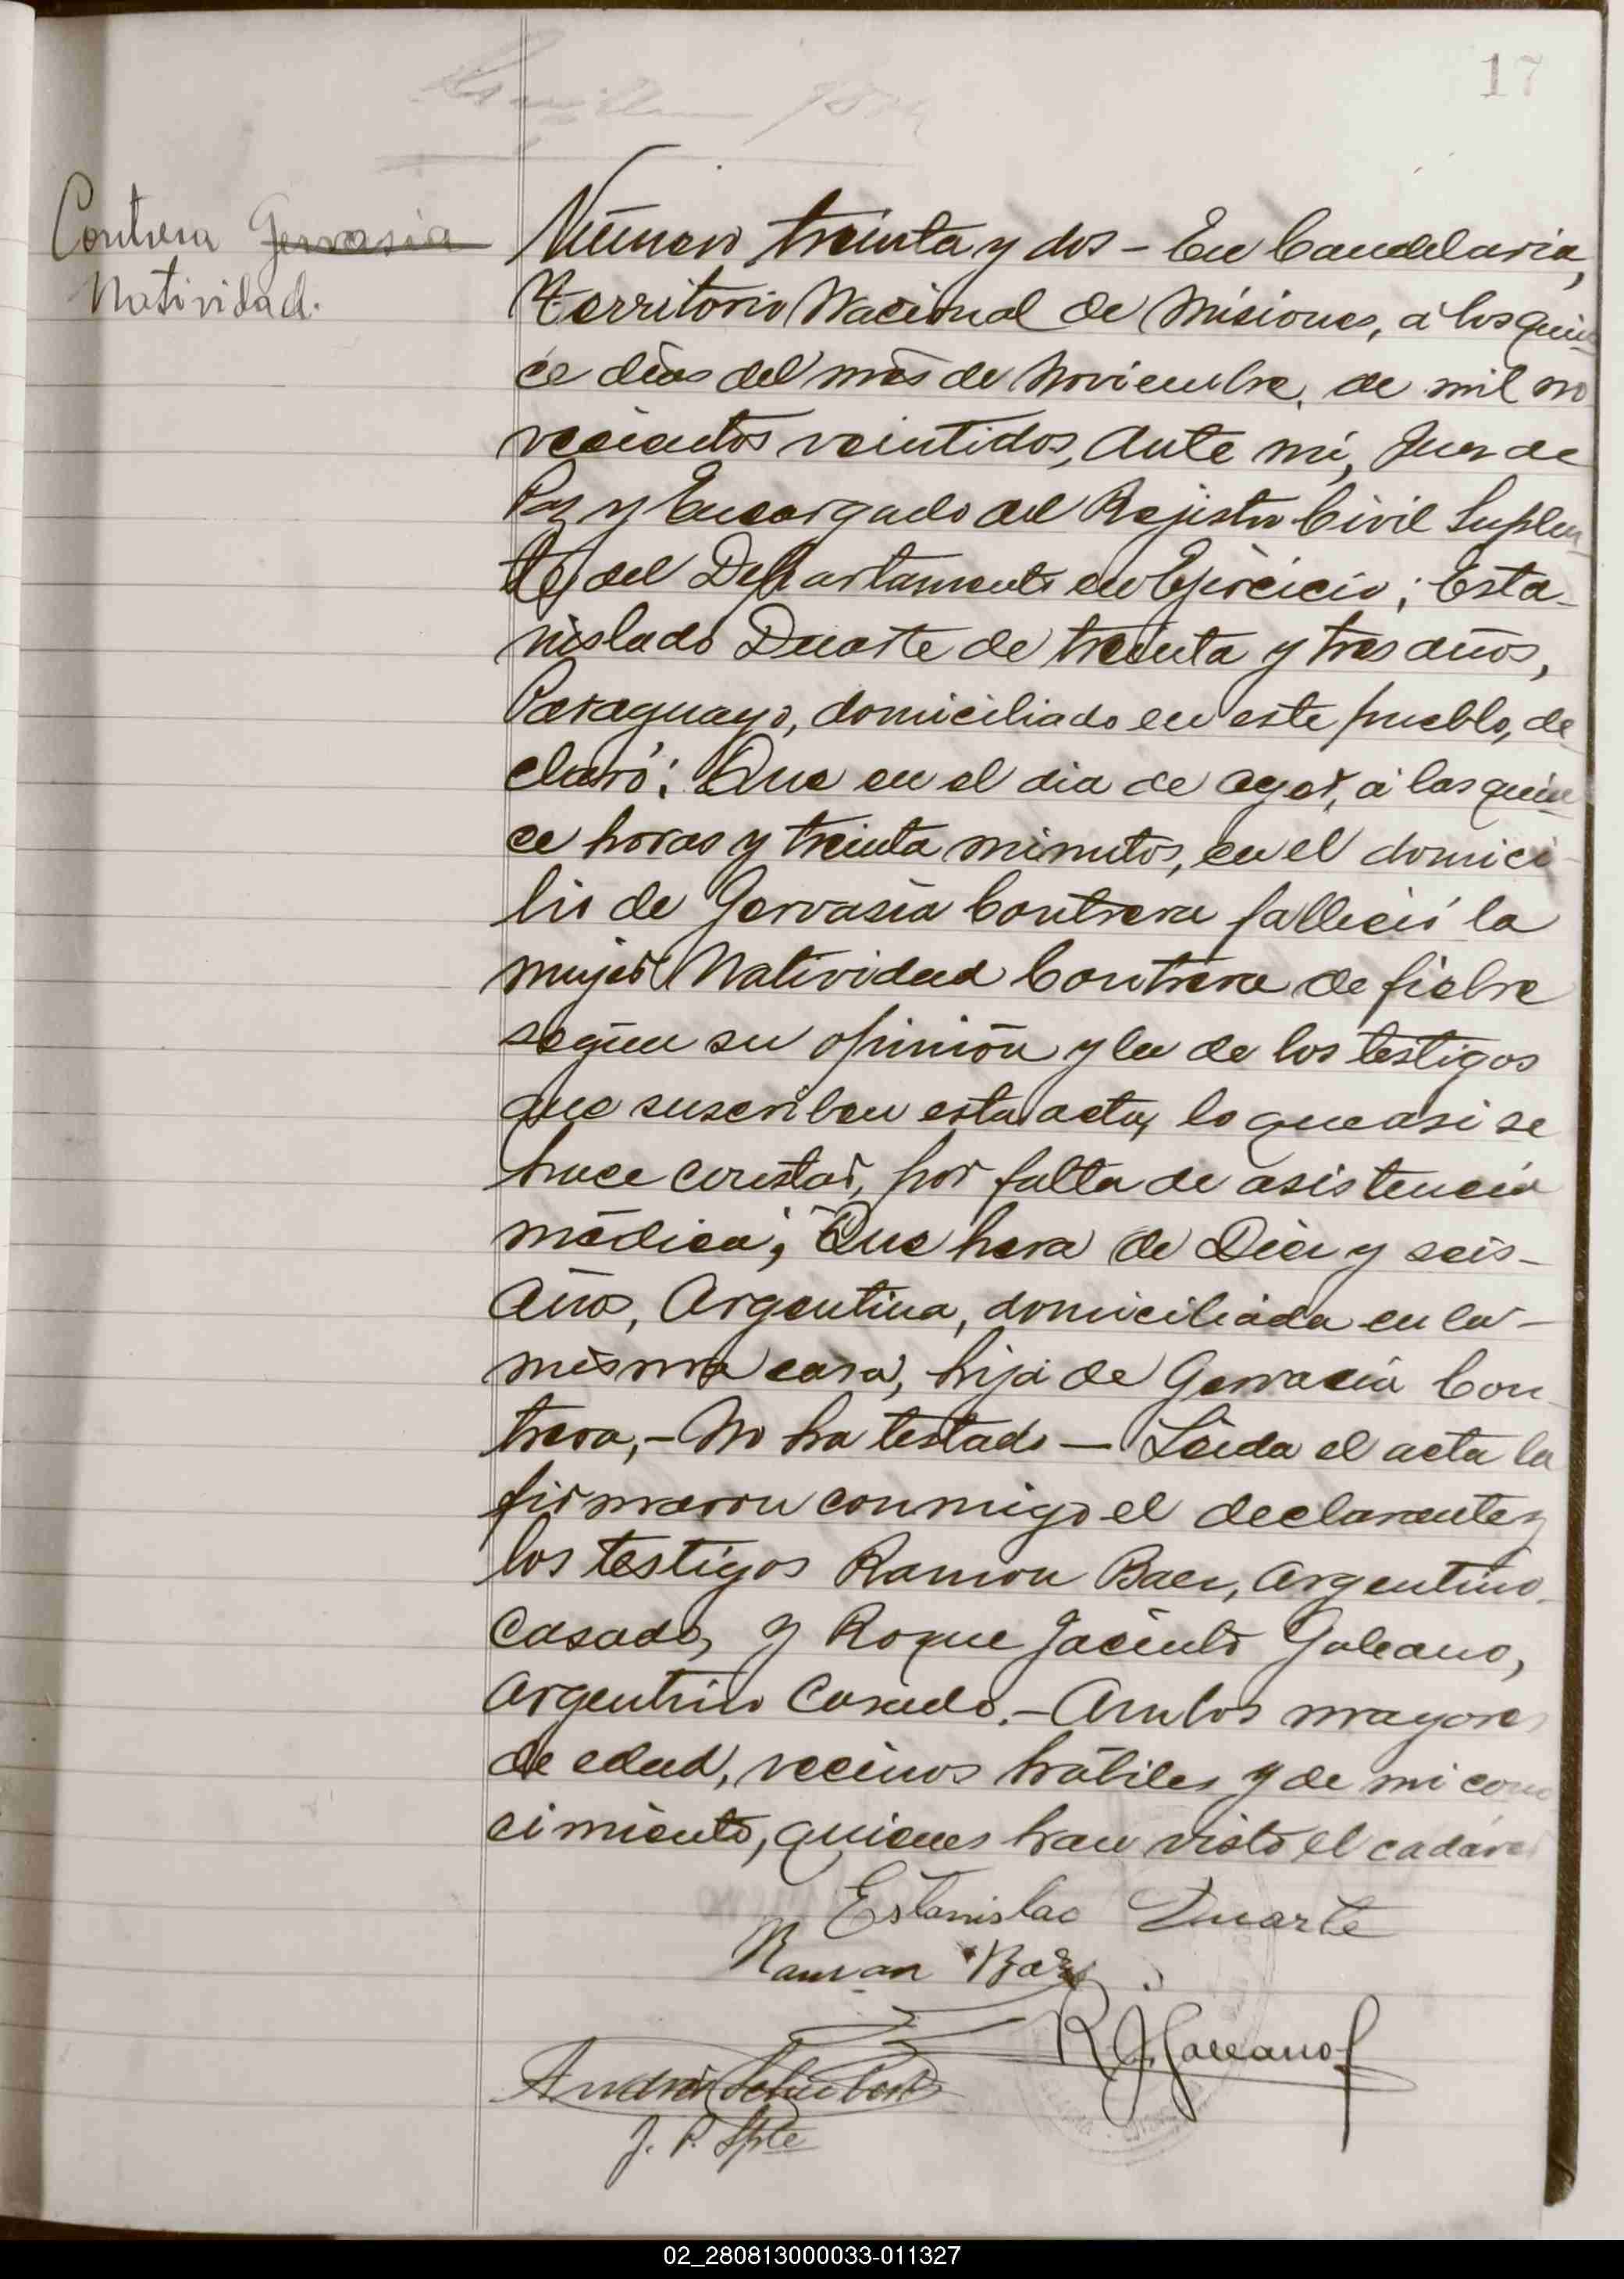 17
Contrera Gervasia
Natividad.
Número treinta y dos – En Candelaria,
Territorio Nacional de Misiones, á los quin
ce días del mes de Noviembre, de mil no
vecientos veintidos, Ante mí, Juez de
Paz y Encargado del Rejistro Civil Suplen
te, del Departamento en Ejercicio; Esta-
nislado Duarte de treinta y tres años,
Paraguayo, domiciliado en este pueblo, de
claró: Que en el dia de ayer, á las quin
ce horas y treinta minutos, en el domici
lio de Gervasia Contrera falleció la
mujer Natividad Contrera de fiebre
según su opinión y la de los testigos
que suscriben esta acta, lo que asi se
hace constar, por falta de asistencia
médica; Que hera de Diez y seis-
Años, Argentina, domiciliada en la-
misma casa, hija de Gervacia Con
trera,- No ha testado – Leida el acta la
firmaron conmigo el declarante y
los testigos Ramon Baez, Argentino
Casado, y Roque Jacinto Galeano,
Argentino Casado.- Ambos mayores
de edad, vecinos hábiles y de mi cono
cimiento, quienes han visto el cadáver
Estanislao Duarte
Ramon Baez
R J Galeano
J. P. Splte
02_280813000033-011327